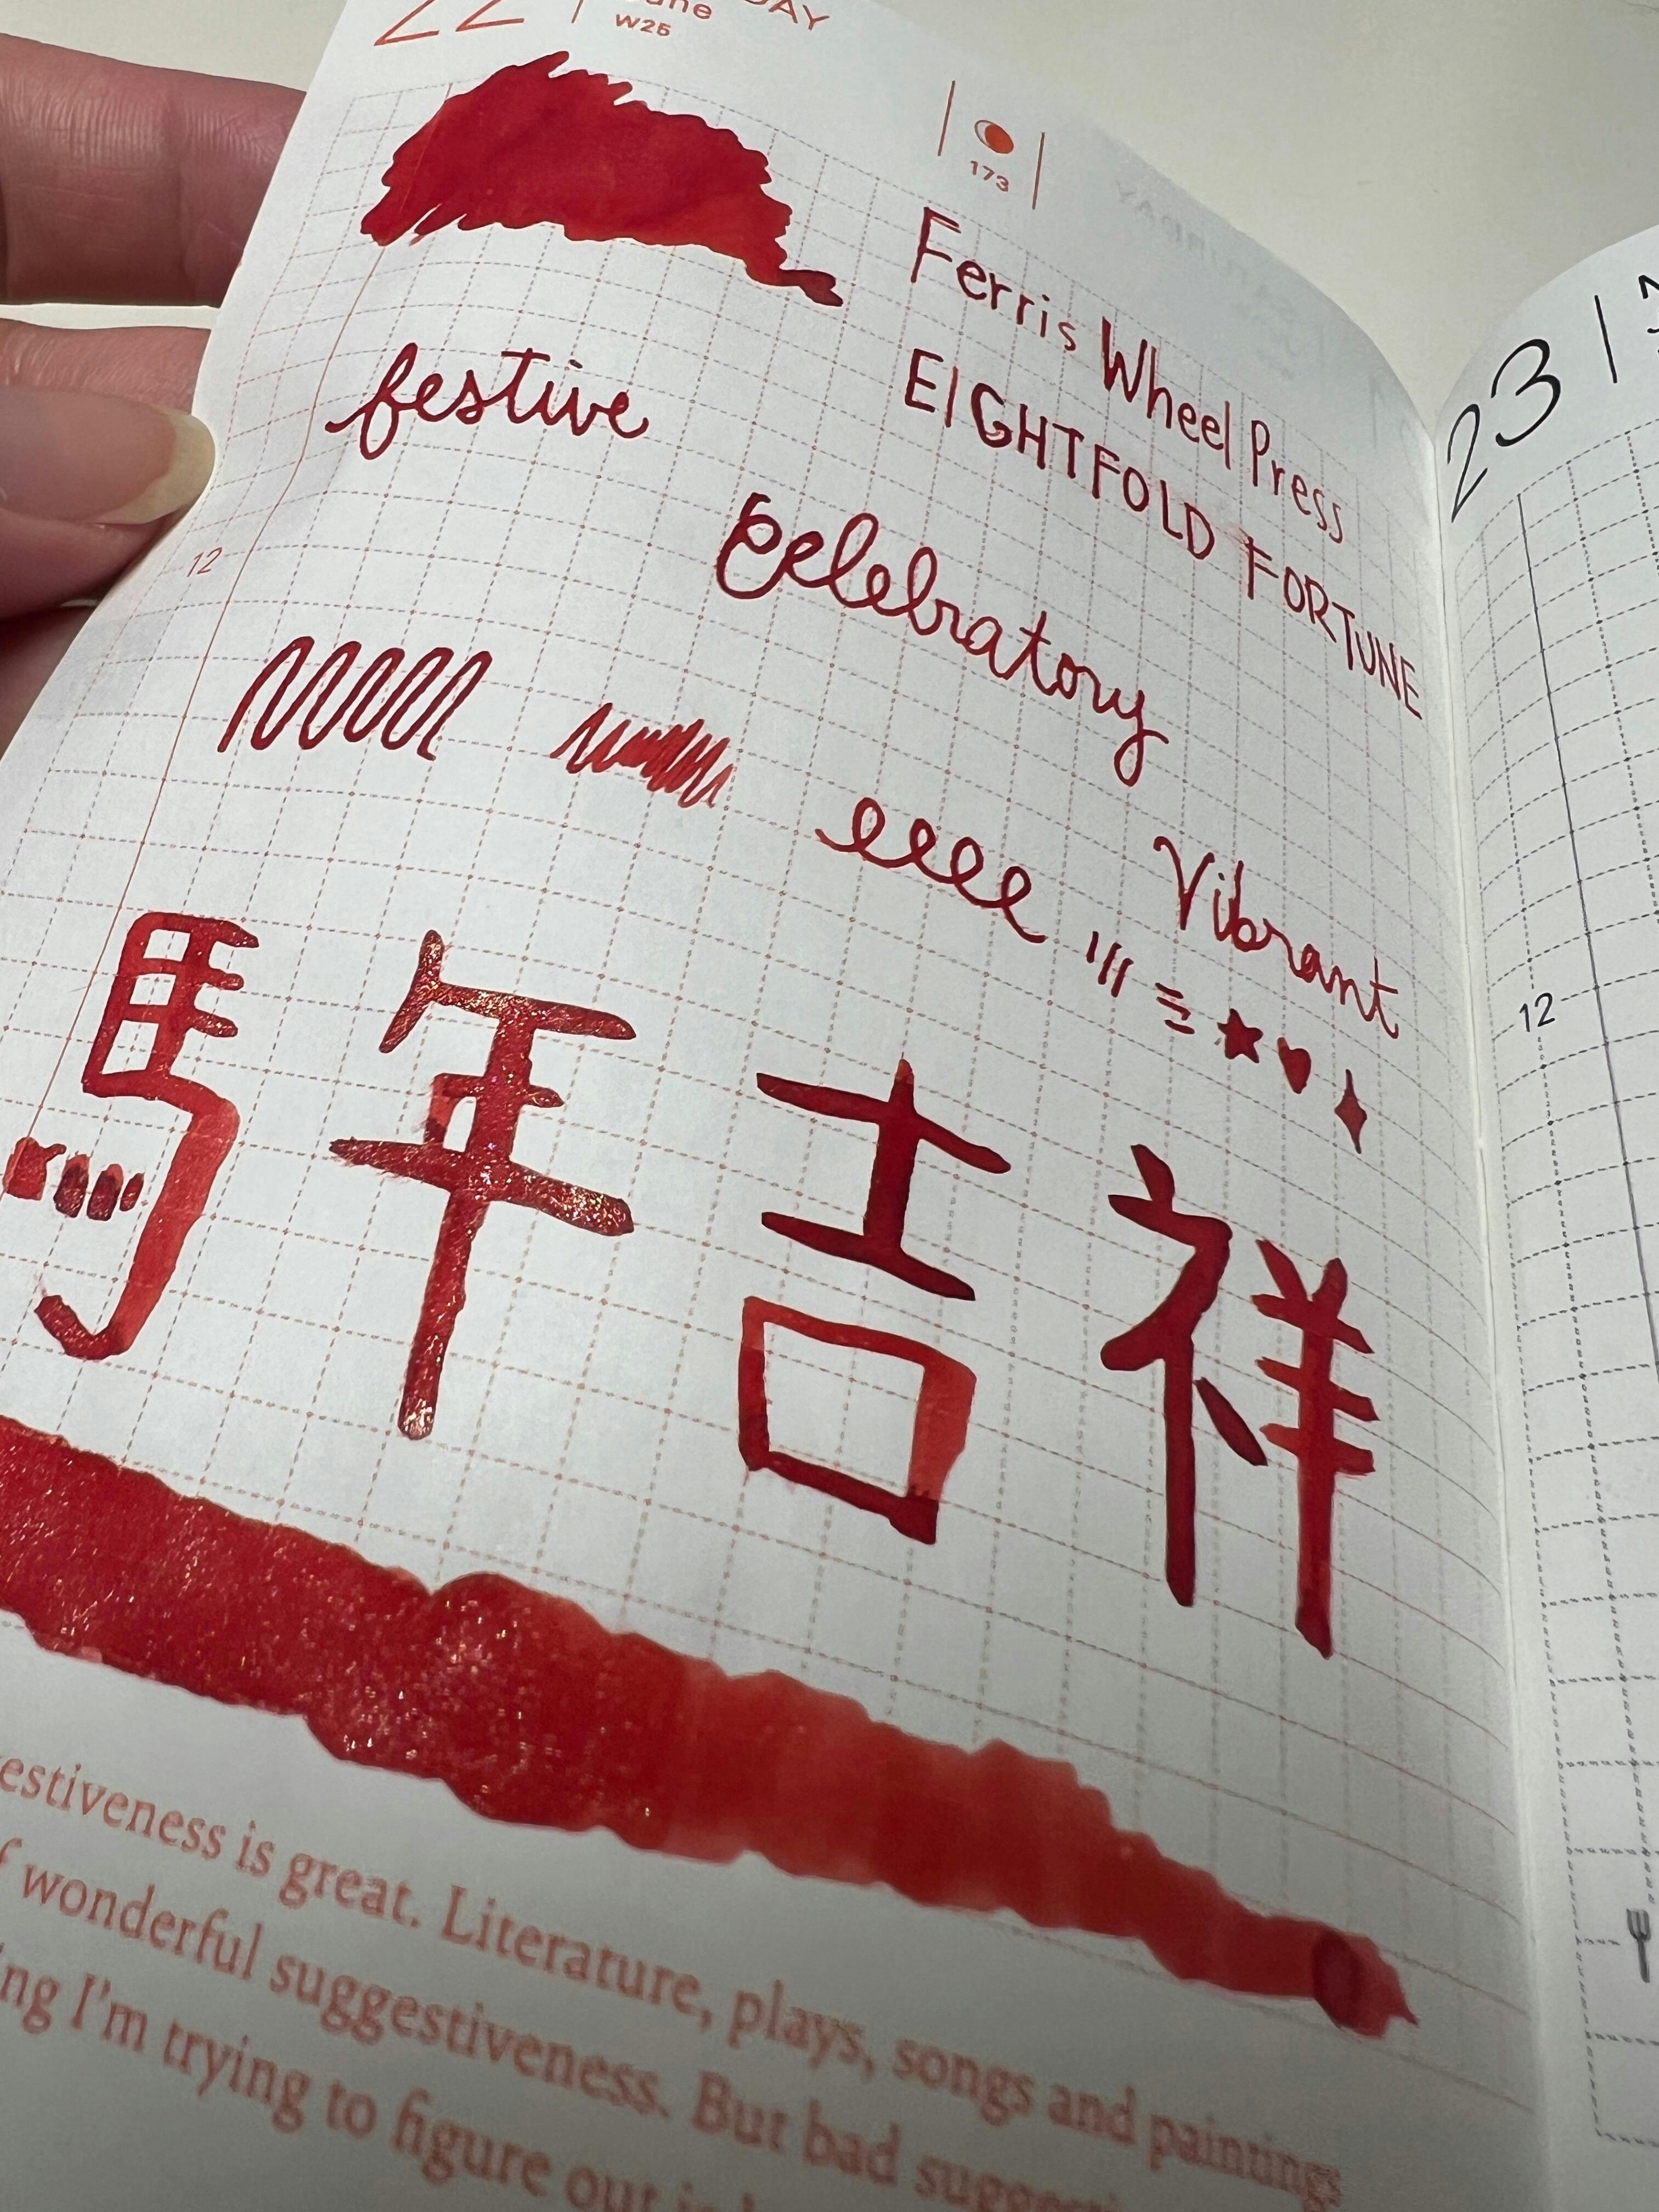 22
W25
173
Ferris Wheel Press
EIGHTFOLD FORTUNE
festive
Celebratory
12
Vibrant
馬年吉祥
is great. Literature, plays, songs and paintings
wonderful suggestiveness. But bad
I'm trying to figure out
23
12